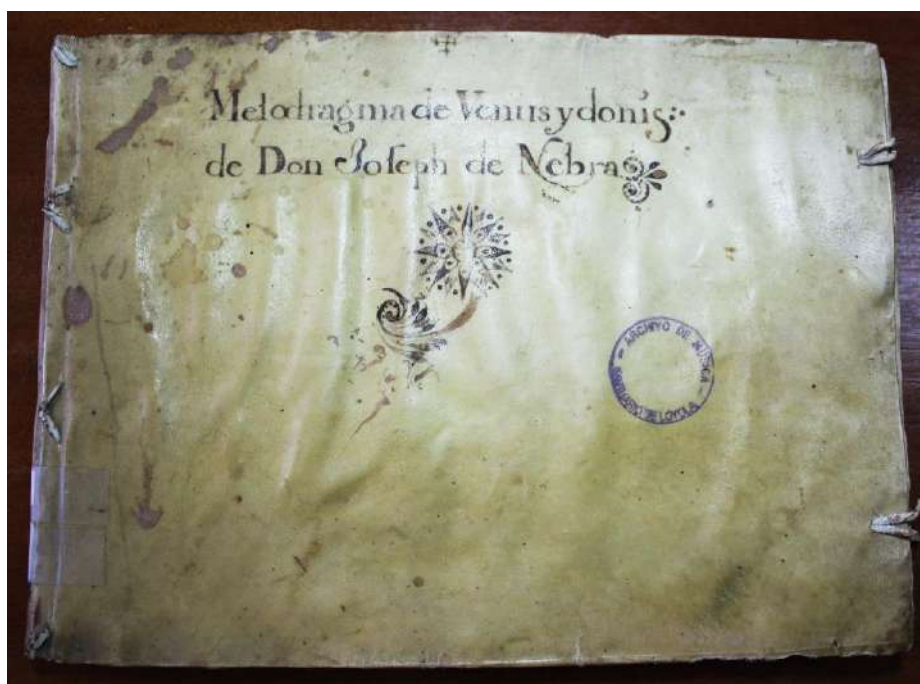 Melodragma de Venus y donis:·
de Don Joseph de Nebra
ARCHIVO DE MUSICA